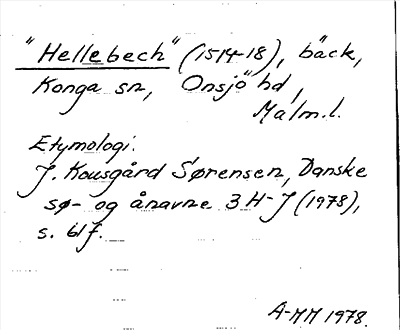 "Hellebech" (1514-18), bäck,
Konga sn, Onsjö hd,
Malm.l.
Etymologi:
J. Kousgård Sørensen, Danske
sø- og ånavne 3 H-J (1978),
s. 61f.
A-MM 1978.